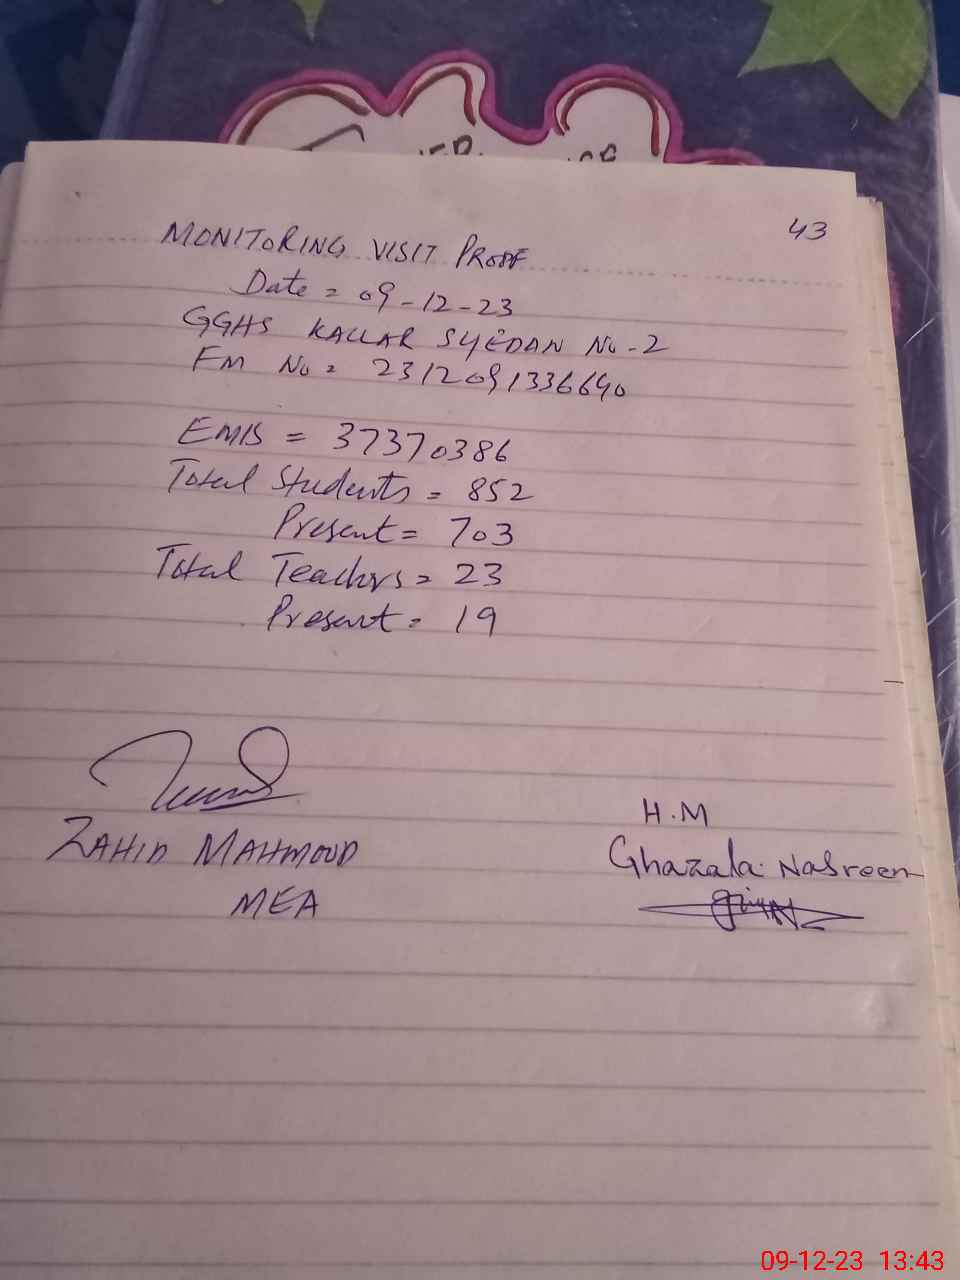 43
MONITORING VISIT PROOF
Date = 09-12-23
GGHS KALLAR SYEDAN No-2
FM No = 2312091336690
EMIS = 37370386
Total Students = 852
Present = 703
Total Teachers = 23
Present = 19
ZAHID MAHMOOD
MEA
H.M
Ghazala Nasreen
09-12-23 13:43